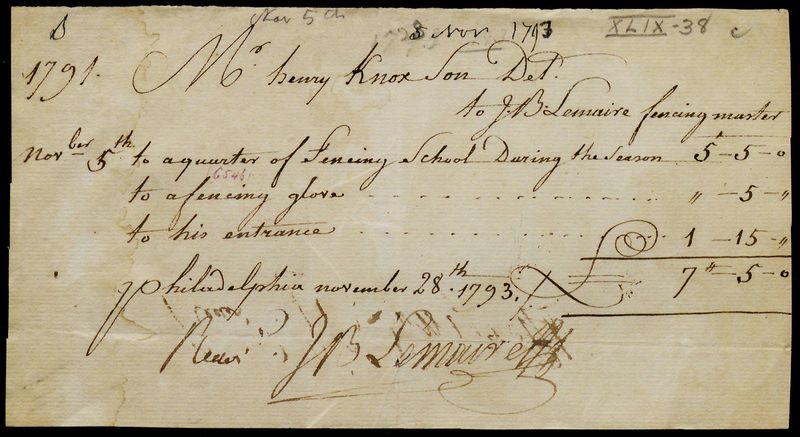 Nov 5th 5 Nov 1793 XLIX-38 c
1791. Mr henry Knox Son Det.
to J.B: Lemaire fencing master
Novber 5th to a quarter of Fencing School During the Season 5-5-0
6546
to a fencing glove " - 5 - "
to his entrance 1 - 15 - "
7"-5-0
philadelphia november 28.th 1793.
J B Lemaire